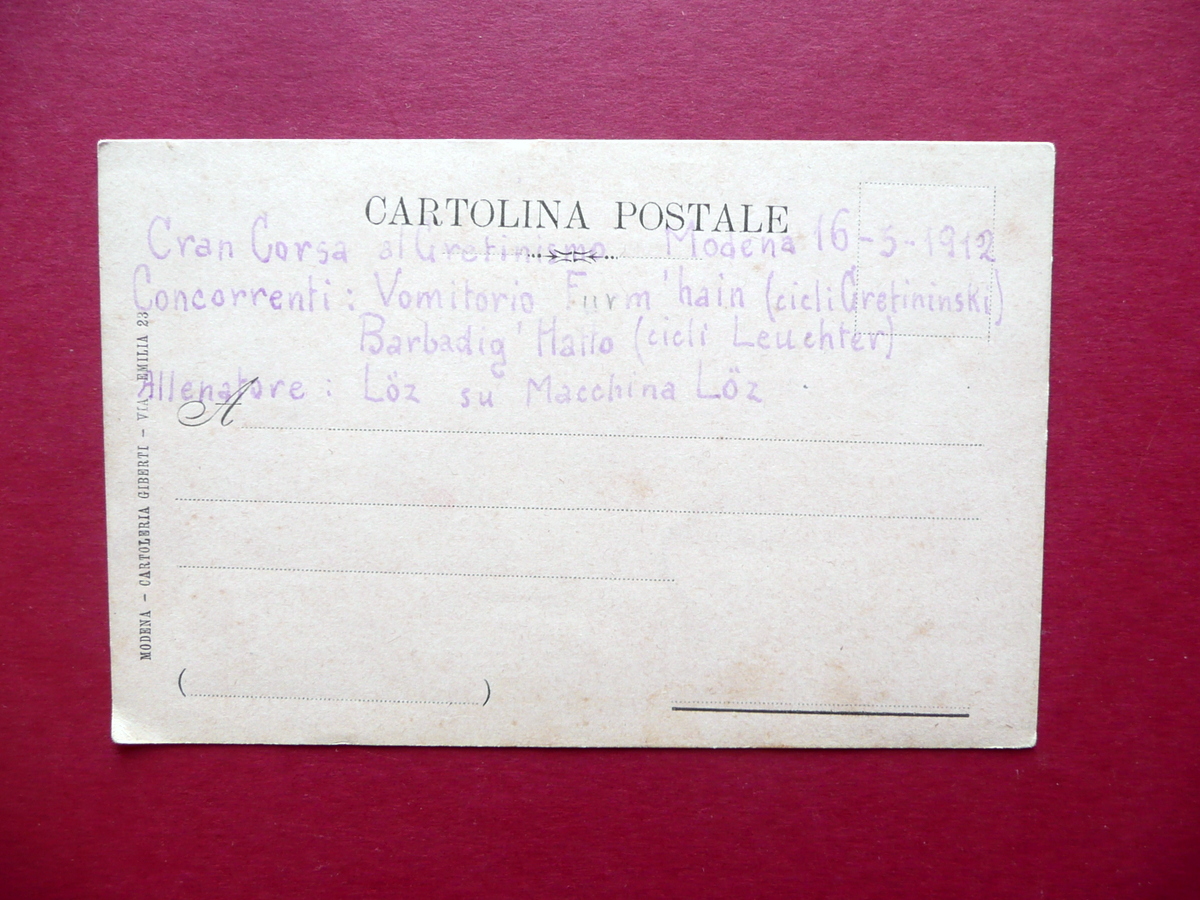 CARTOLINA POSTALE
Cran Corsa al Cretinismo Modena 16-5-1912
Concorrenti: Vomitorio Furm'hain (cicli Cretininski)
Barbadig' (cicli Leuchter)
Allenatore: Löz su Macchina Löz
A
( )
MODENA – CARTOLERIA GIBERTI – VIA EMILIA 23